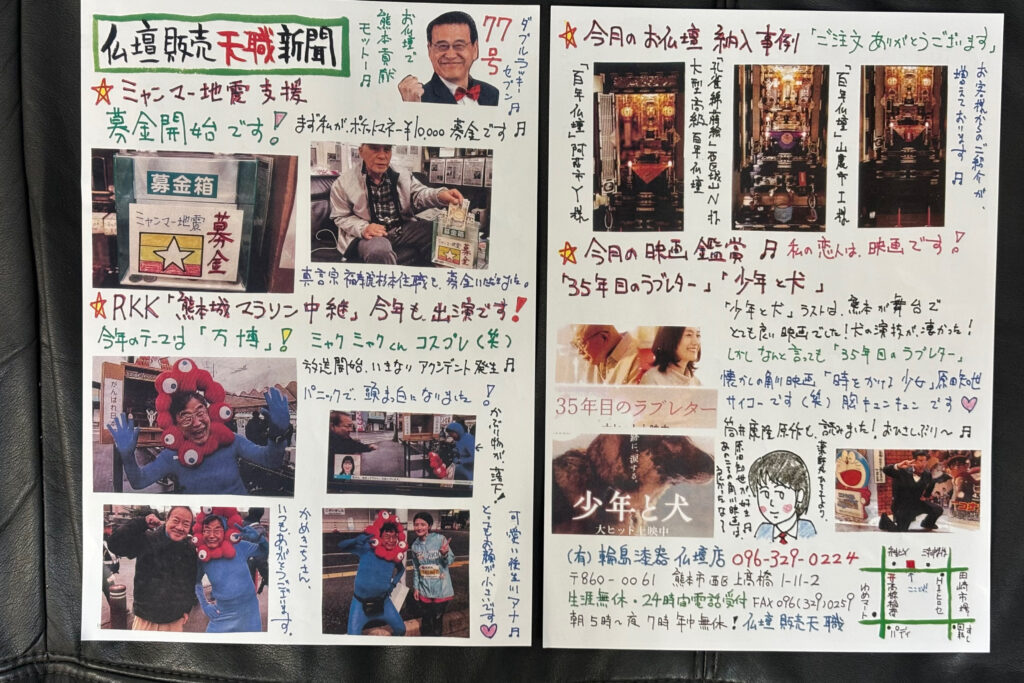 仏壇販売天職新聞
お仏壇で
熊本貢献
モットー♬
77号
ダブルラッキーセブン♬
☆ミャンマー地震支援
募金開始です!
まず私が、ポケットマネー¥10,000募金です♬
募金箱
ミャンマー地震
募金
募金
☆RKK「熊本城マラソン中継」今年も出演です!
今年のテーマは「万博」!ミャクミャクくんコスプレ(笑)
放送開始、いきなりアクシデント発生♬
パニックで、頭ま白になりました!
かぶり物が、落下!
がんばれ
かめきちさん、
いつもありがとうございます。
可愛い後生川アナ♬
とってもお顔が小さいです
☆今月のお仏壇納入事例「ご注文ありがとうございます」
「百年仏壇」阿蘇市Y様
大型高級百年仏壇
「百年仏壇」山鹿市工様
お客様からのご紹介が、
増えております♬
☆今月の映画鑑賞♬私の恋人は、映画です!
「35年目のラブレター」「少年と犬」
「少年と犬」ラストは、熊本が舞台で
とても良い映画でした!犬の演技が、凄かった!
しかしなんと言っても「35年目のラブレター」
懐かしの角川映画「時をかける少女」原田知世
サイコーです(笑)胸キュンキュンです
筒井康隆原作も、読みました!おひさしぶり〜♬
35年目のラブレター
大ヒット上映中
涙する。
少年と犬
大ヒット上映中
原田知世が、好き♬
(有)輪島漆器仏壇店 096-329-0224
〒860-0061 熊本市西区上高橋1-11-2
生涯無休・24時間電話受付 FAX 096(329)0259
朝5時〜夜7時年中無休!仏壇販売天職
田崎市場
ゆめマート